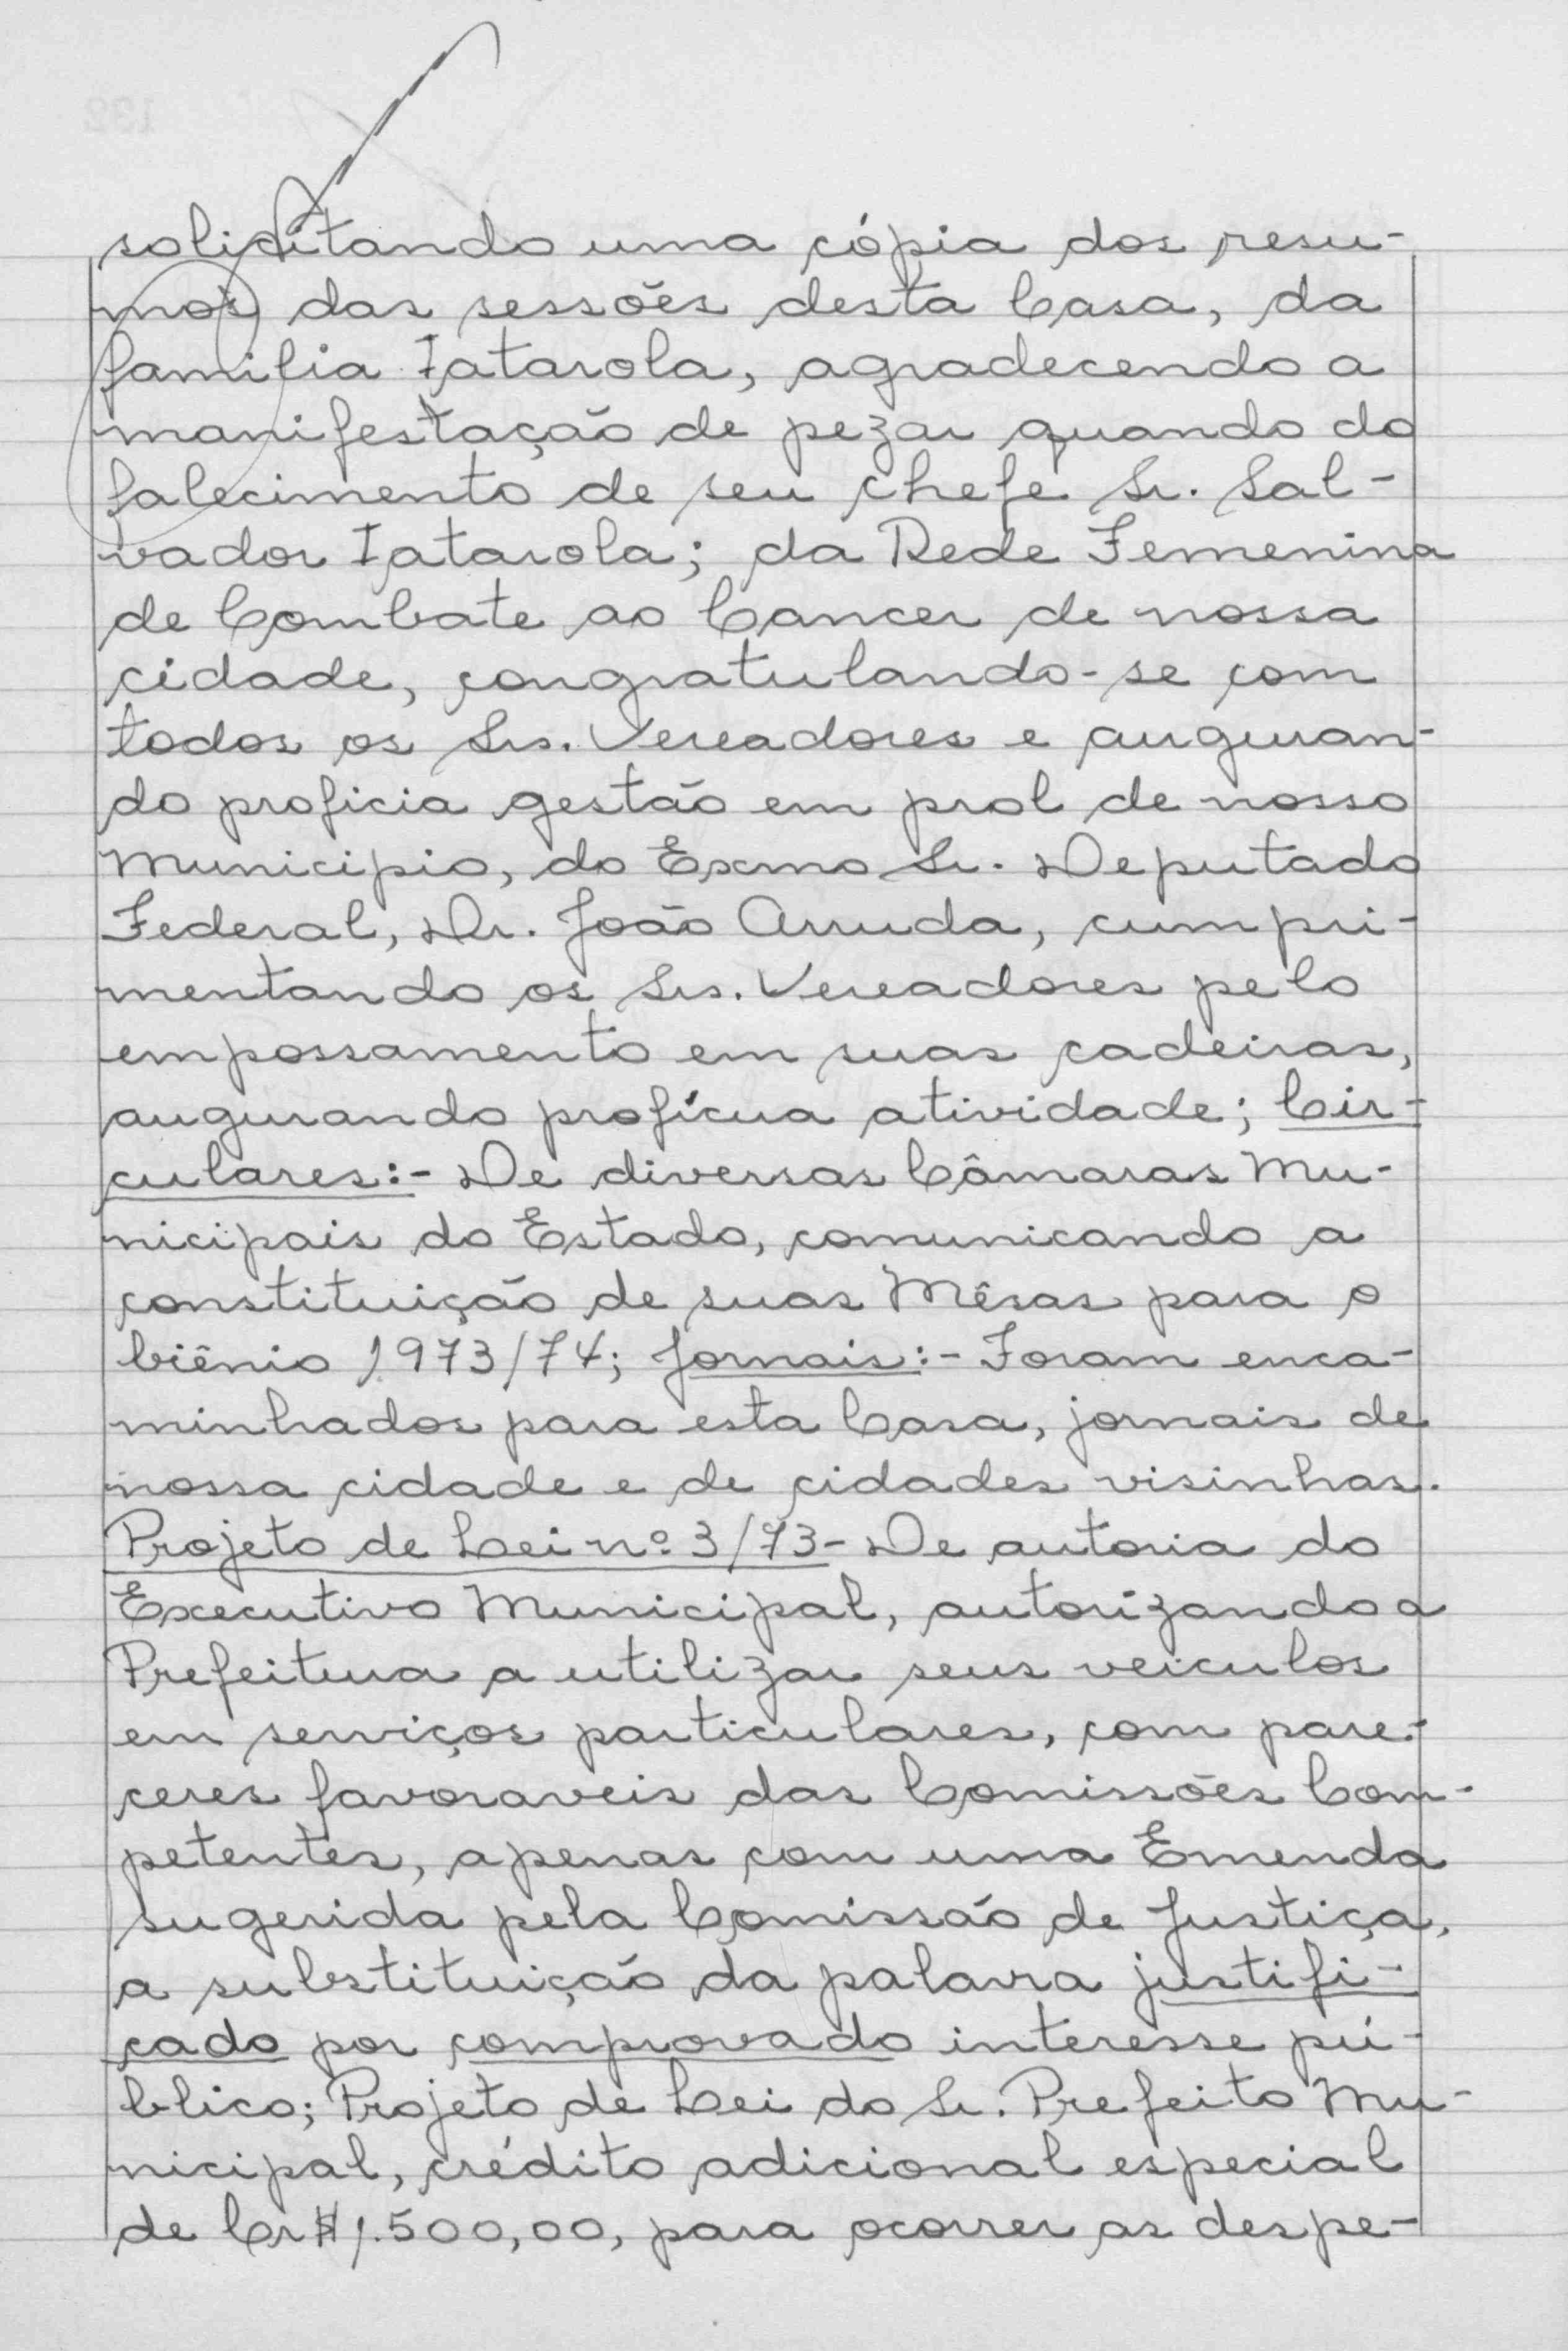 solicitando uma cópia dos resu-
mos das sessões desta Casa, da
familia Iatarola, agradecendo a
manifestação de pezar quando do
falecimento de seu chefe Sr. Sal-
vador Iatarola; da Rede Femenina
de Combate ao Cancer de nossa
cidade, congratulando-se com
todos os Srs. Vereadores e auguran-
do proficia gestão em prol de nosso
Municipio, do Exmo Sr. Deputado
Federal, Dr. João Arruda, cumpri-
mentando os Srs. Vereadores pelo
empossamento em suas cadeiras,
augurando profícua atividade; Cir-
culares:- De diversas Câmaras Mu-
nicipais do Estado, comunicando a
constituição de suas Mêsas para o
biênio 1973/74; Jornais:- Foram enca-
minhados para esta Casa, jornais de
nossa cidade e de cidades visinhas.
Projeto de Lei nº 3/73- De autoria do
Executivo Municipal, autorizando a
Prefeitura a utilizar seus veiculos
em serviços particulares, com pare-
ceres favoraveis das Comissões Com-
petentes, apenas com uma Emenda
sugerida pela Comissão de Justiça,
a substituição da palavra justifi-
cado por comprovado interesse pú-
blico; Projeto de Lei do Sr. Prefeito Mu-
nicipal, crédito adicional especial
de Cr$ 1.500,00, para ocorrer as despe-